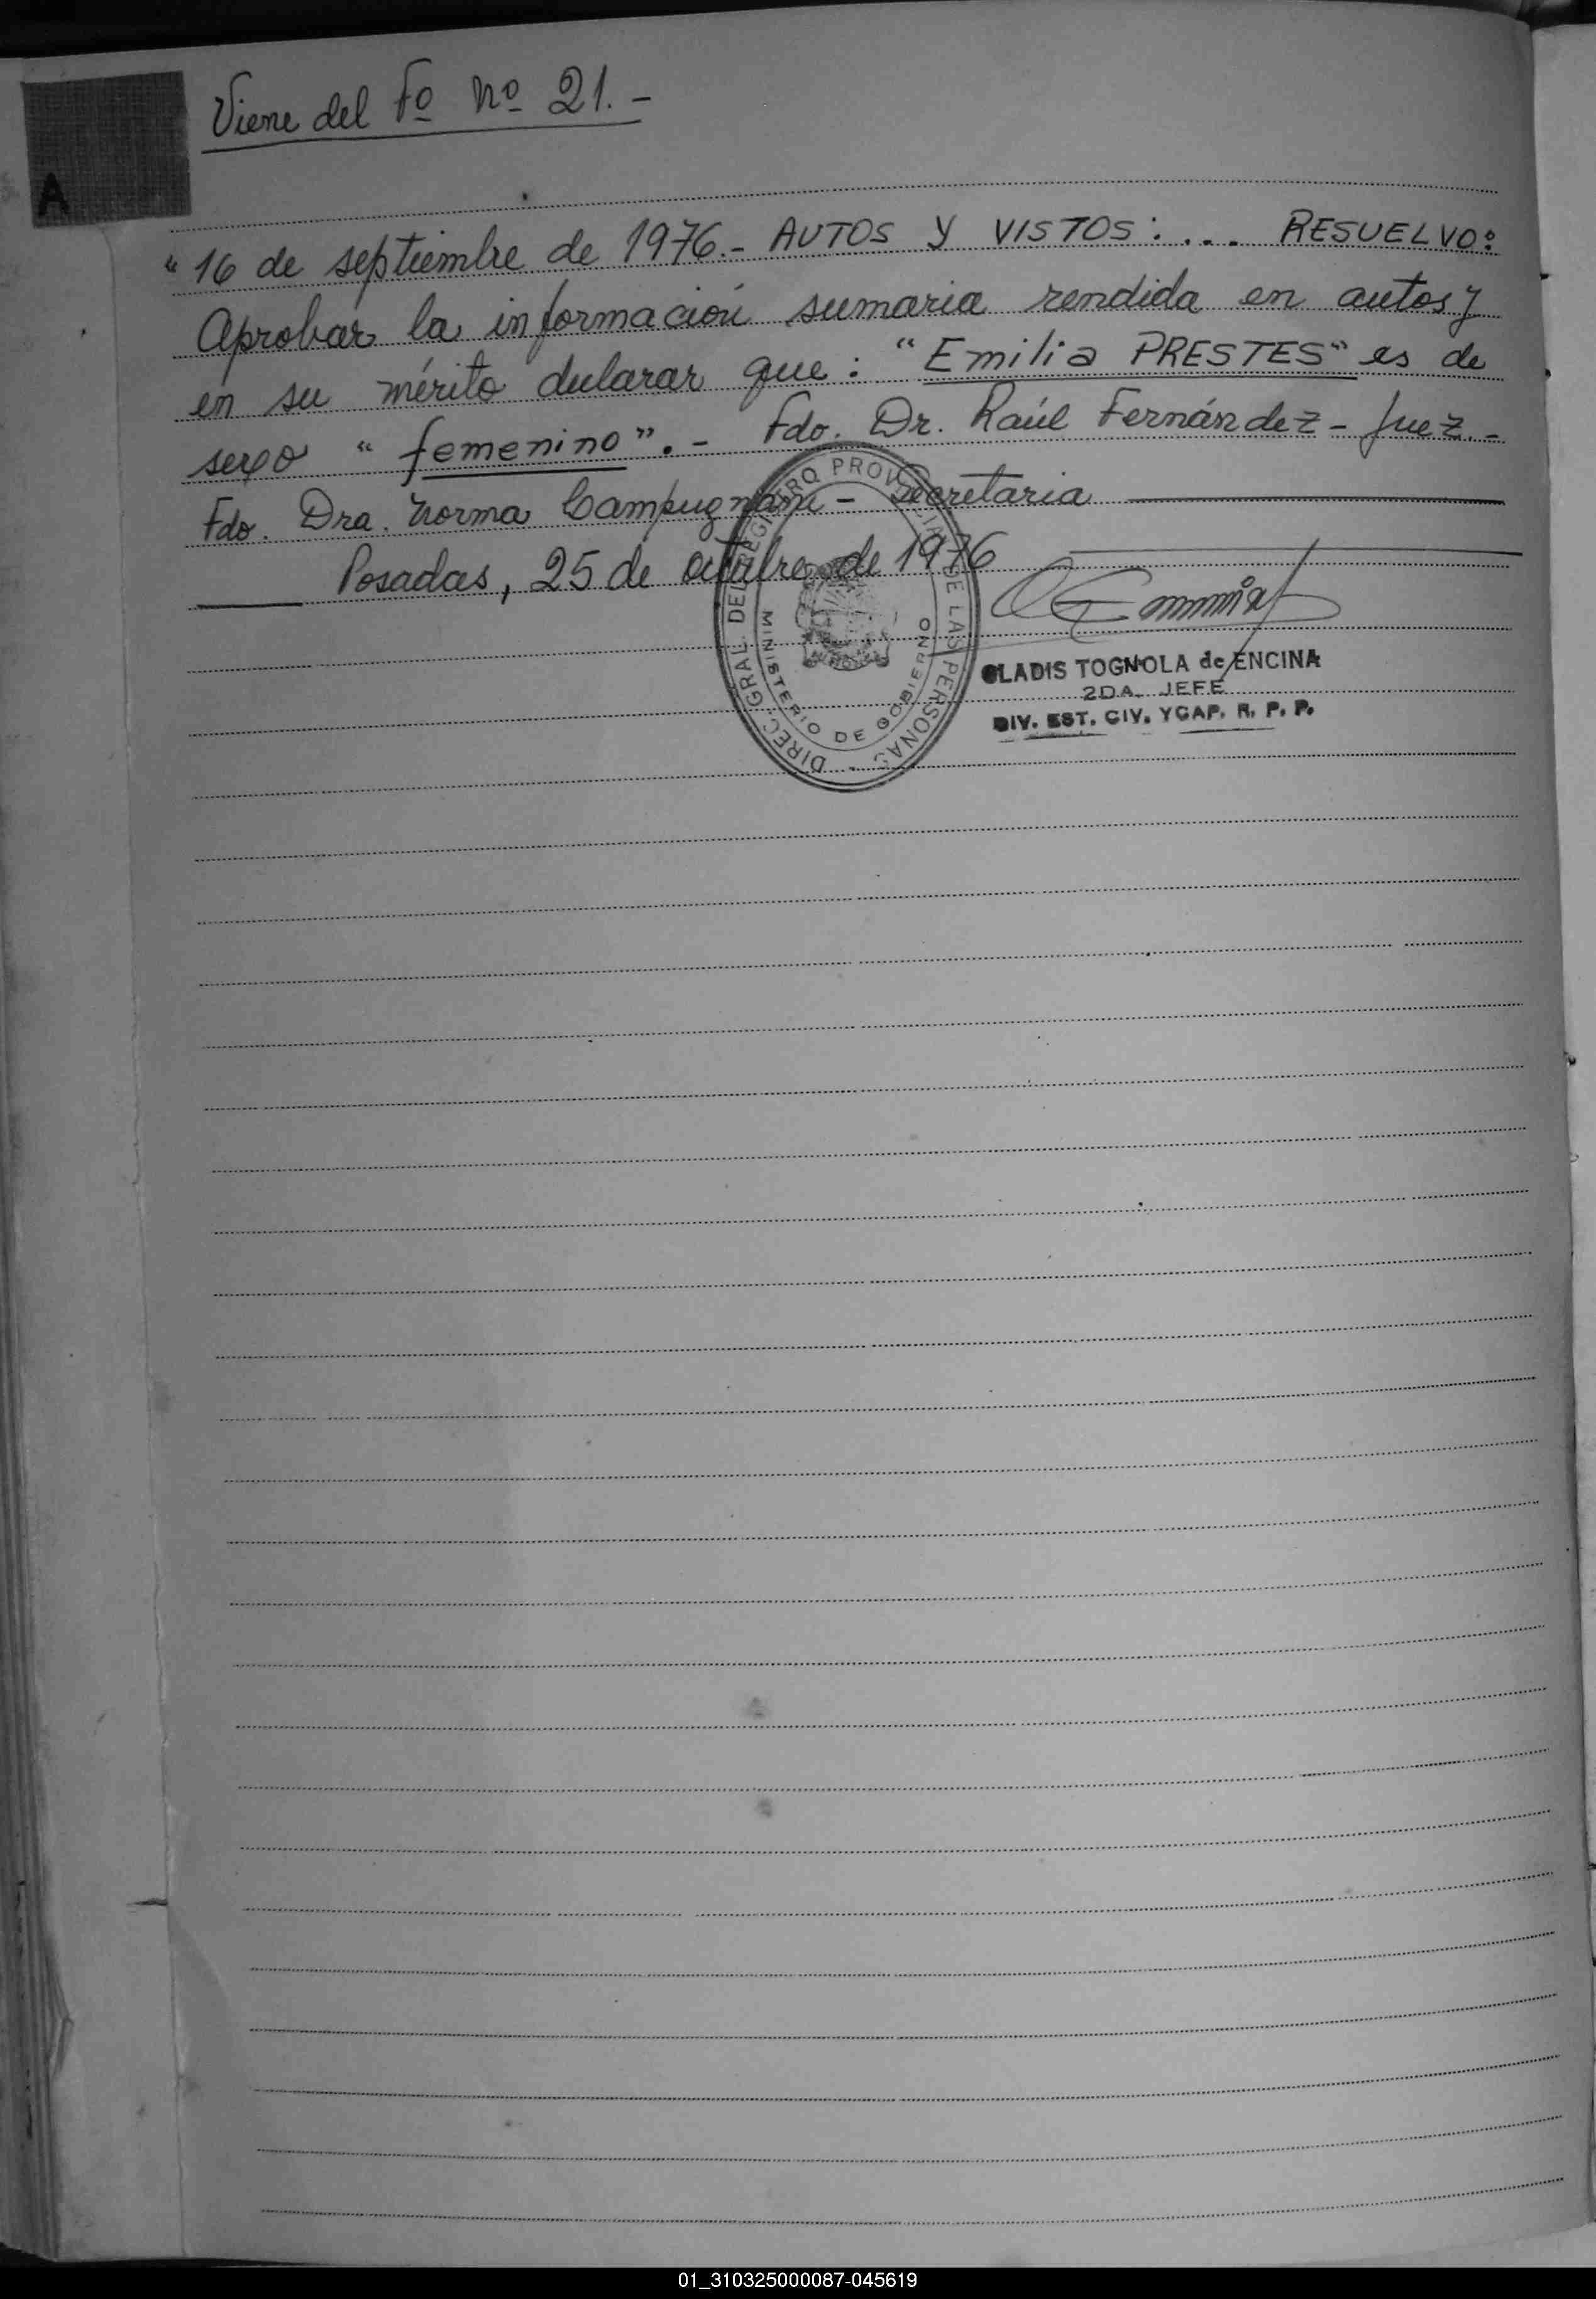 Viene del Fº Nº 21.-
A
"16 de septiembre de 1976.- AUTOS Y VISTOS: ... RESUELVO:
Aprobar la información sumaria rendida en autos y
en su mérito declarar que: "Emilia PRESTES" es de
sexo "femenino".- Fdo. Dr. Raúl Fernández - Juez.-
Fdo. Dra. Norma Campugnani - Secretaria
Posadas, 25 de octubre de 1976
DIREC. GRAL. DEL REGISTRO PROVINCIAL DE LAS PERSONAS -
MINISTERIO DE GOBIERNO
GLADIS TOGNOLA de ENCINA
2DA. JEFE
DIV. EST. CIV. YCAP. R. P. P.
01_310325000087-045619